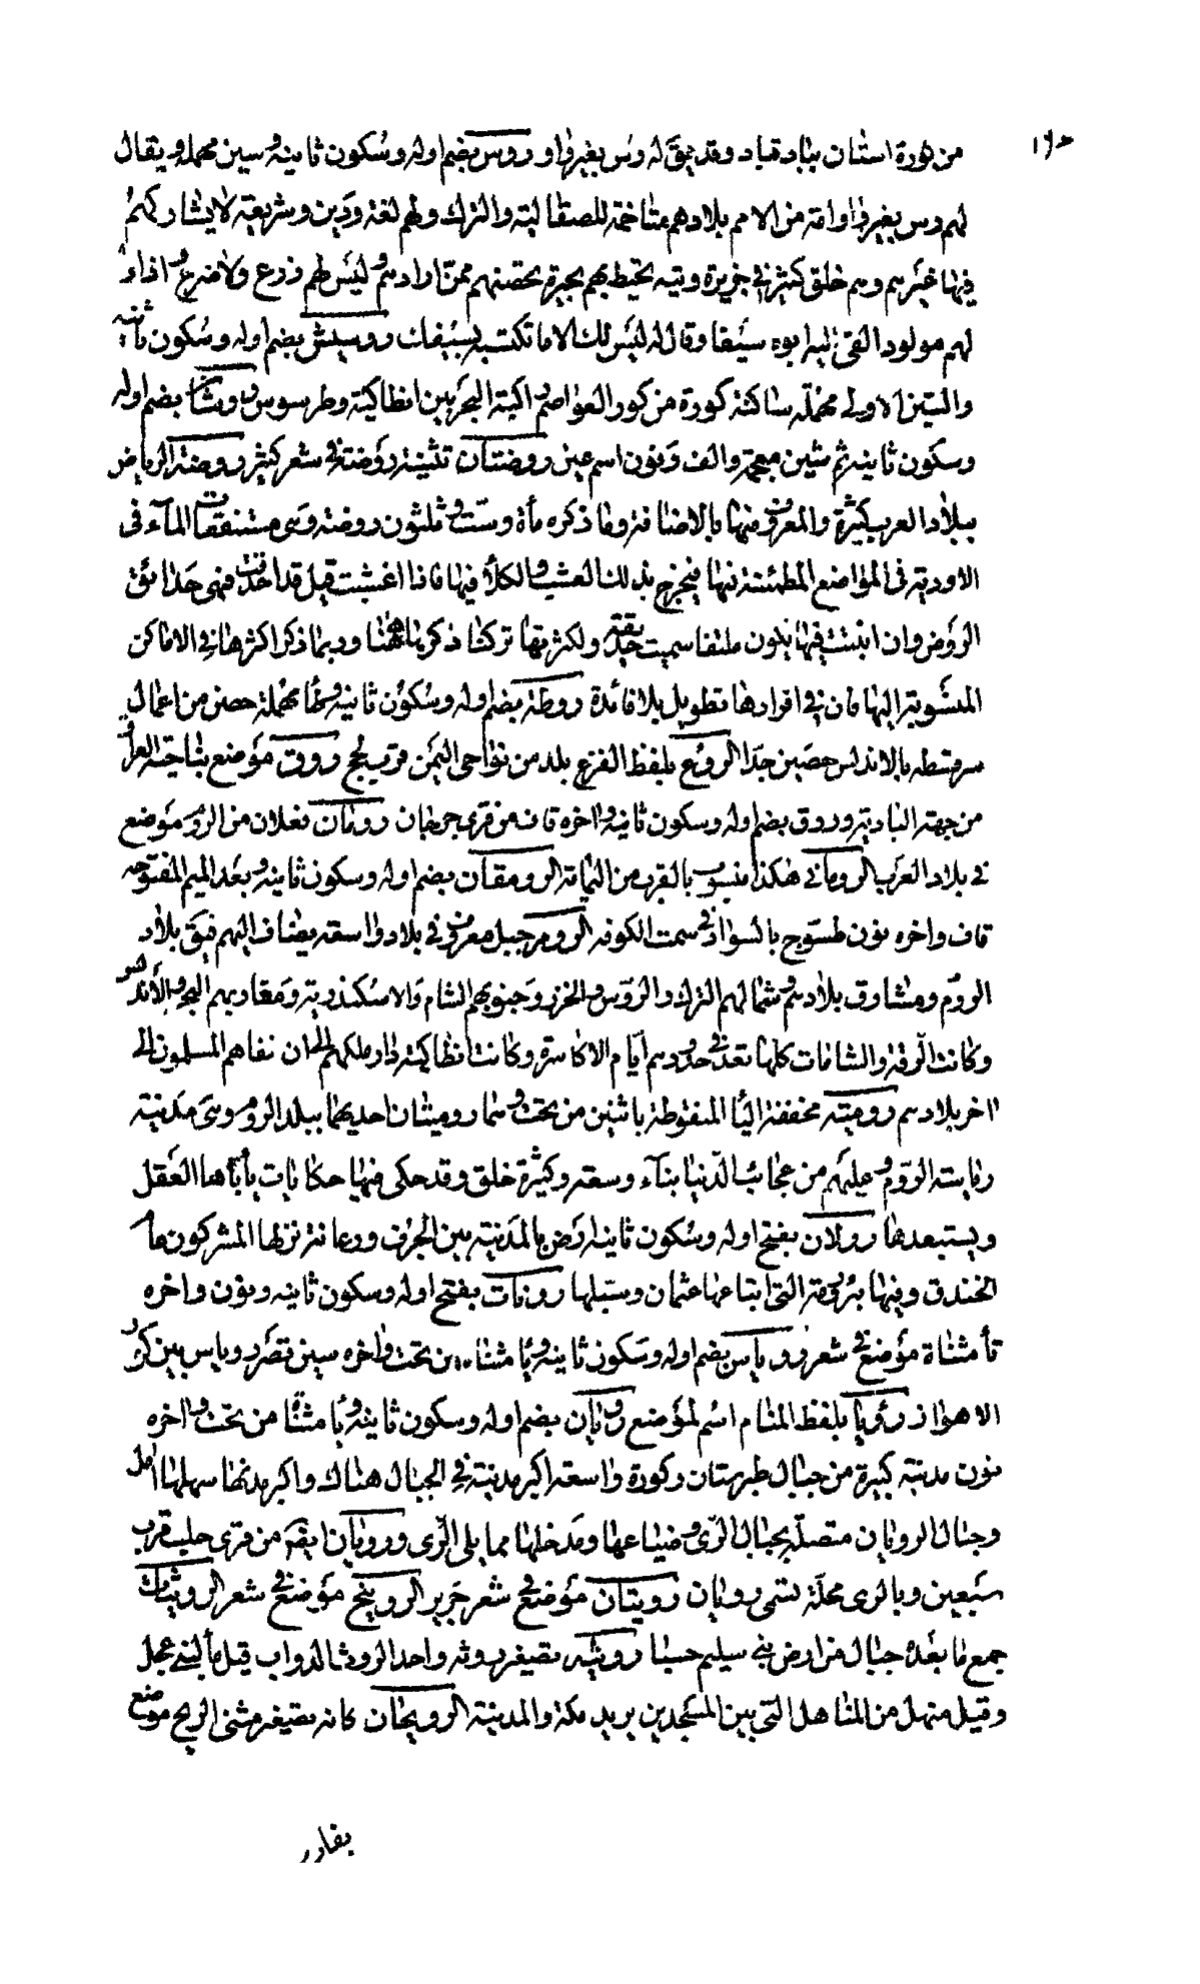 من كورة استان بهاد قباد وقد يقال له روس بغير واو روس بضم اوله وسكون ثانيه وسين مهملة ويقال
لهم رس بغير واو امة من الامم بلادهم متاخمة للصقالبة والترك ولهم لغة ودين وشريعة لا يشاركهم
فيها غيرهم وهم خلق كثير في جزيرة وبية تحيط بهم بحيرة تحصنهم ممن ارادهم وليس لهم زرع ولا ضرع اذا
لهم مولود القى اليه ابوه سيفا وقال له ليس لك الا ما تكتسبه بسيفك روسيس بضم اوله وسكون ثانيه
والسين الاولى مهملة ساكنة كورة من كور العواصم راكبة البحر بين انطاكية وطرسوس روشا بضم اوله
وسكون ثانيه ثم شين معجمة والف ونون اسم عين روضتان تثنية روضة في شعر كثير روضة الرياض
ببلاد العرب كثيرة والمعروف منها بالاضافة وما ذكره مأة وست وثلثون روضة وهى مستنقعات المآء فى
الاودية فى المواضع المطمئنة منها فيخرج بذلك العشب والكلأ فيها فاذا اعشبت قيل قد احدقت فهى حدائق
الروض وان انبتت فيها يكون ملتفا سميت حديقة ولكثرتها تركنا ذكرها ههنا وربما ذكر اكثرها فى الاماكن
المنسوبة اليها فان فى افرادها تطويل بلا فائدة روطة بضم اوله وسكون ثانيه وطا مهملة حصن من اعمال
سرقسطه بالاندلس حصين جدا الروع بلفظ الفزع بلد من نواحى اليمن قرب لحج روق موضع بناحية العراق
من جهة البادية وروق بضم اوله وسكون ثانيه واخره قاف من قرى جرجان رومان فعلان من الروم موضع
فى بلاد العرب الرومانى هكذا منسوب بالقرب من اليمامة الرومقان بضم اوله وسكون ثانيه وبعد الميم المفتوحه
قاف واخره نون طسوج بالسواد فى سمت الكوفه الروم جبل معروف فى بلاد واسعة يضاف اليهم فيق بلاد
الروم ومشارق بلادهم وشمالهم الترك والروس والخزر وجنوبهم الشام والاسكندرية ومغاربهم البحر والاندلس
وكانت الرقة والشامات كلها تعد فى حدودهم ايام الاكاسرة وكانت انطاكية دار ملكهم الى ان نفاهم المسلمون الى
اخر بلادهم رومية مخففة اليأ المنقوطة باثنين من تحت وهما روميتان احديهما ببلد الروم وهى مدينة
رياسة الروم وعلمهم من عجائب الدنيا بنآء وسعة وكثرة خلق وقد حكى فيها حكايات يأباها العقل
ويستبعدها رولان بفتح اوله وسكون ثانيه ارض بالمدينة بين الجرف ورعانة نزلها المشركون عام
الخندق وفيها بئر رومة التى ابتاعها عثمان وسبلها رونات بفتح اوله وسكون ثانيه ونون واخره
تأ مثناة موضع فى شعر روياس بضم اوله وسكون ثانيه ويا مثناة من تحت واخره سين تصر روياس بين كور
الاهواز رؤيا بلفظ المنام اسم لموضع رويان بضم اوله وسكون ثانيه ويا مثناة من تحت واخره
نون مدينة كبيرة من جبال طبرستان وكورة واسعة اكبر مدينة فى الجبال هناك واكبر مدنها سهلها امل
وجبال الرويان متصلة بجبال الرى وضياعها ومدخلها مما يلى الرى ورويان ايضا من قرى حلب قرب
سبعين وبالرى محلة تسمى رويان رويتان موضع فى شعر جرير الرويتج موضع فى شعر الرويثات
جمع ما بعده جبال من ارض بنى سليم حسا رويثه تصغير روثه واحد الروث الدواب قيل مأ لبنى عجل
وقيل منهل من المناهل التى بين المسجدين يريد مكة والمدينة الرويحان كانه تصغير مثنى الريح موضع
بفارس